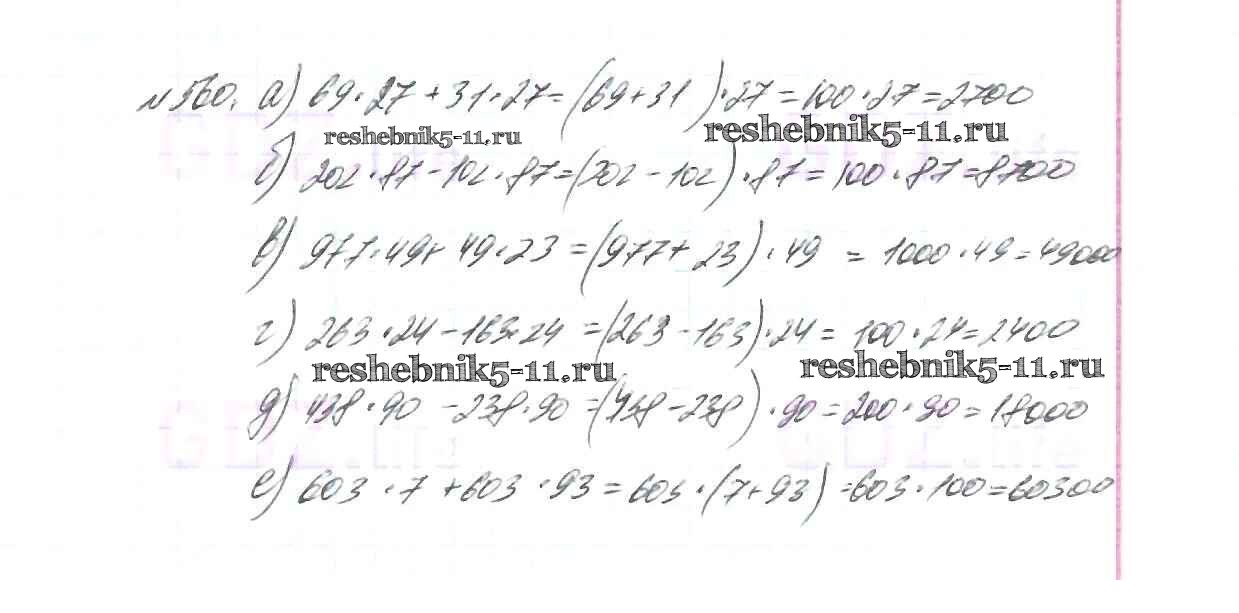 №560. а) 69·27+31·27=(69+31)·27=100·27=2700
reshebnik5-11.ru reshebnik5-11.ru
б) 202·87-102·87=(202-102)·87=100·87=8700
в) 977·49+49·23=(977+23)·49=1000·49=49000
г) 263·24-163·24=(263-163)·24=100·24=2400
reshebnik5-11.ru reshebnik5-11.ru
д) 438·90-238·90=(438-238)·90=200·90=18000
GDZ.me
е) 603·7+603·93=603·(7+93)=603·100=60300